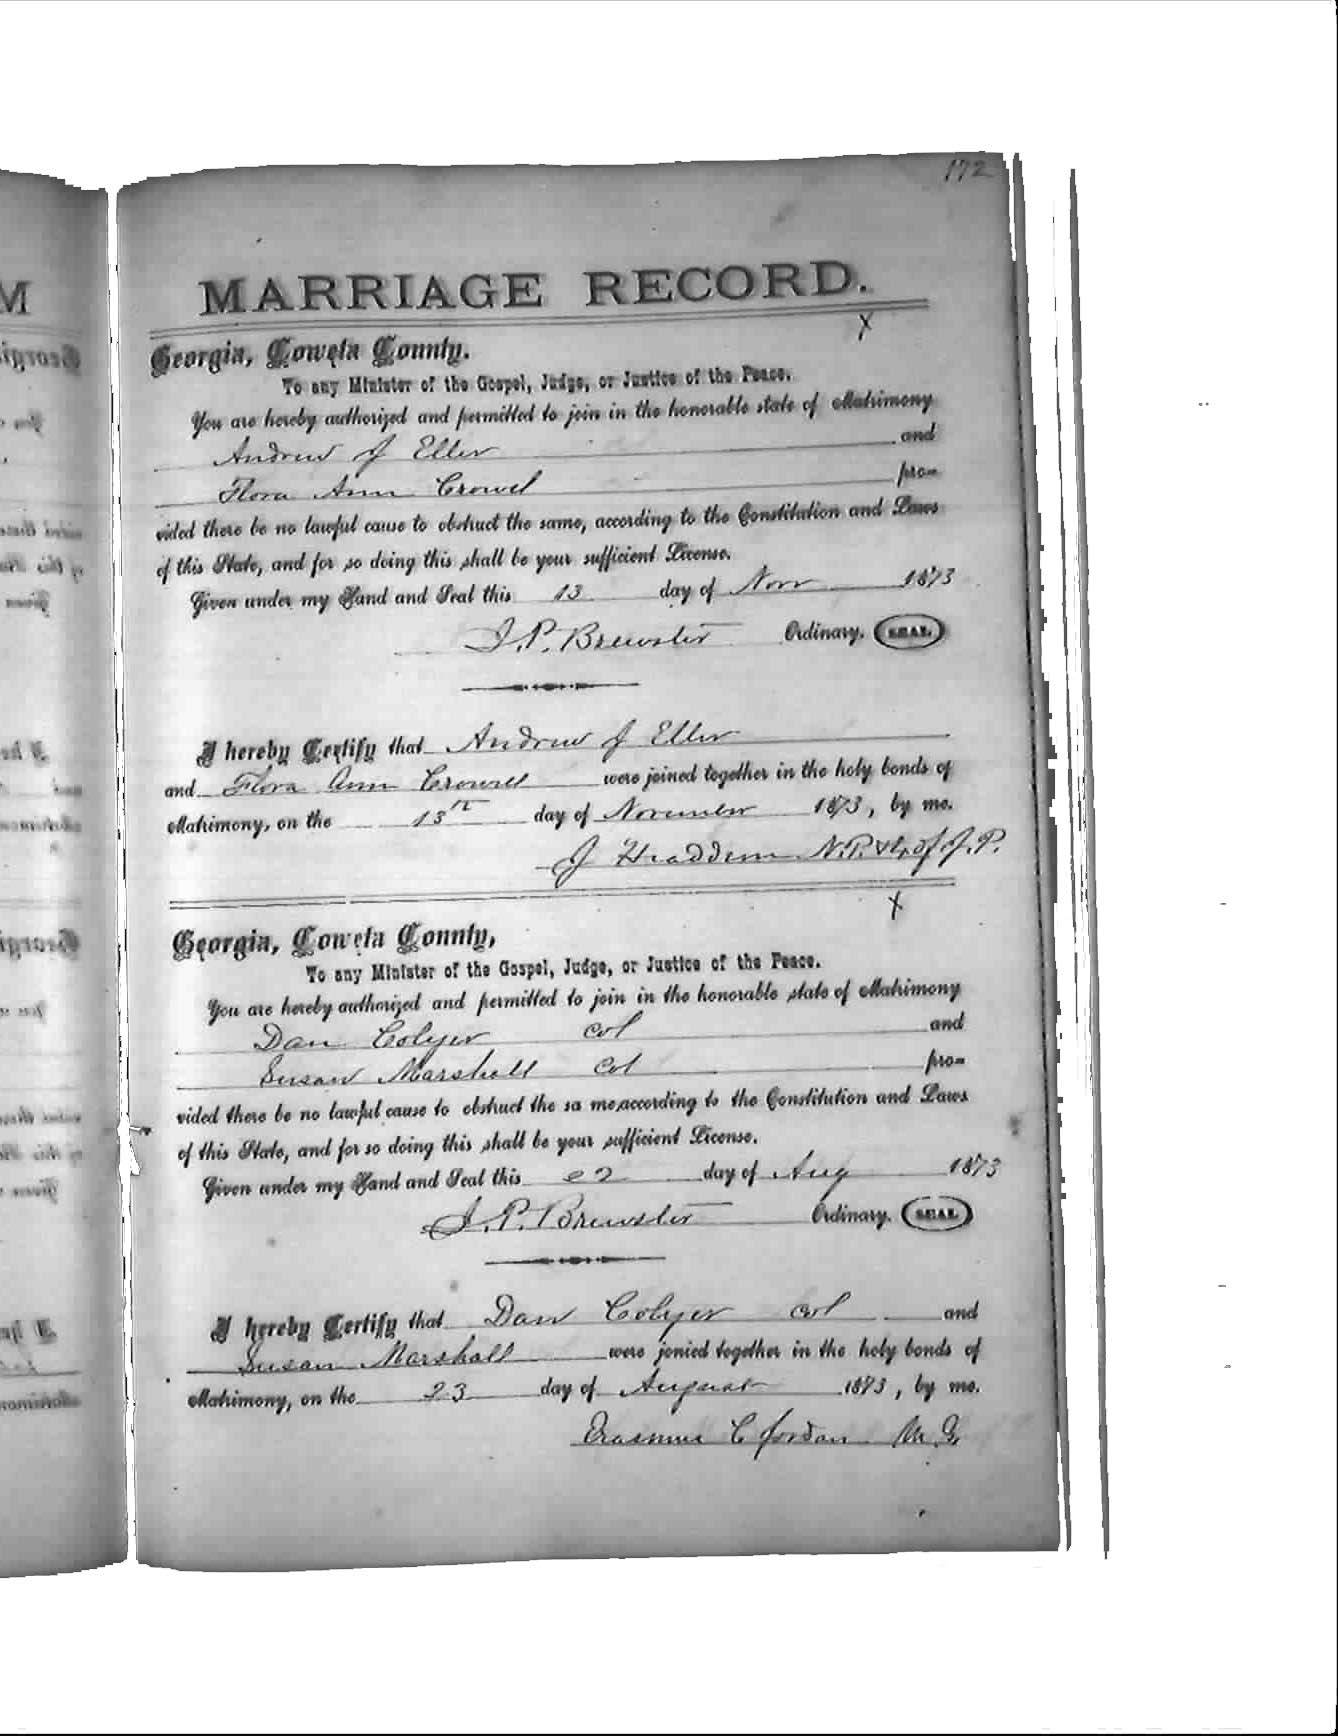 172
MARRIAGE RECORD.
Georgia, Coweta County.
To any Minister of the Gospel, Judge, or Justice of the Peace.
You are hereby authorized and permitted to join in the honorable state of Matrimony
Andrew J Eller and
Flora Ann Crowel pro-
vided there be no lawful cause to obstruct the same, according to the Constitution and Laws
of this State, and for so doing this shall be your sufficient License.
Given under my Hand and Seal this 13 day of Novr 1873
J. P. Brewster Ordinary. SEAL.
I hereby Certify that Andrew J Eller
and Flora Ann Crowell were joined together in the holy bonds of
Matrimony, on the 13th day of November 1873, by me.
J Headden N.P. & J.P.
Georgia, Coweta County,
To any Minister of the Gospel, Judge, or Justice of the Peace.
You are hereby authorized and permitted to join in the honorable state of Matrimony
Dan Colyer col and
Susan Marshall col pro-
vided there be no lawful cause to obstruct the sa me, according to the Constitution and Laws
of this State, and for so doing this shall be your sufficient License.
Given under my Hand and Seal this 22 day of Aug 1873
J. P. Brewster Ordinary. SEAL
I hereby Certify that Dan Colyer col and
Susan Marshall were jonied together in the holy bonds of
Matrimony, on the 23 day of August 1873, by me.
Erasmus C Jordan M.G.